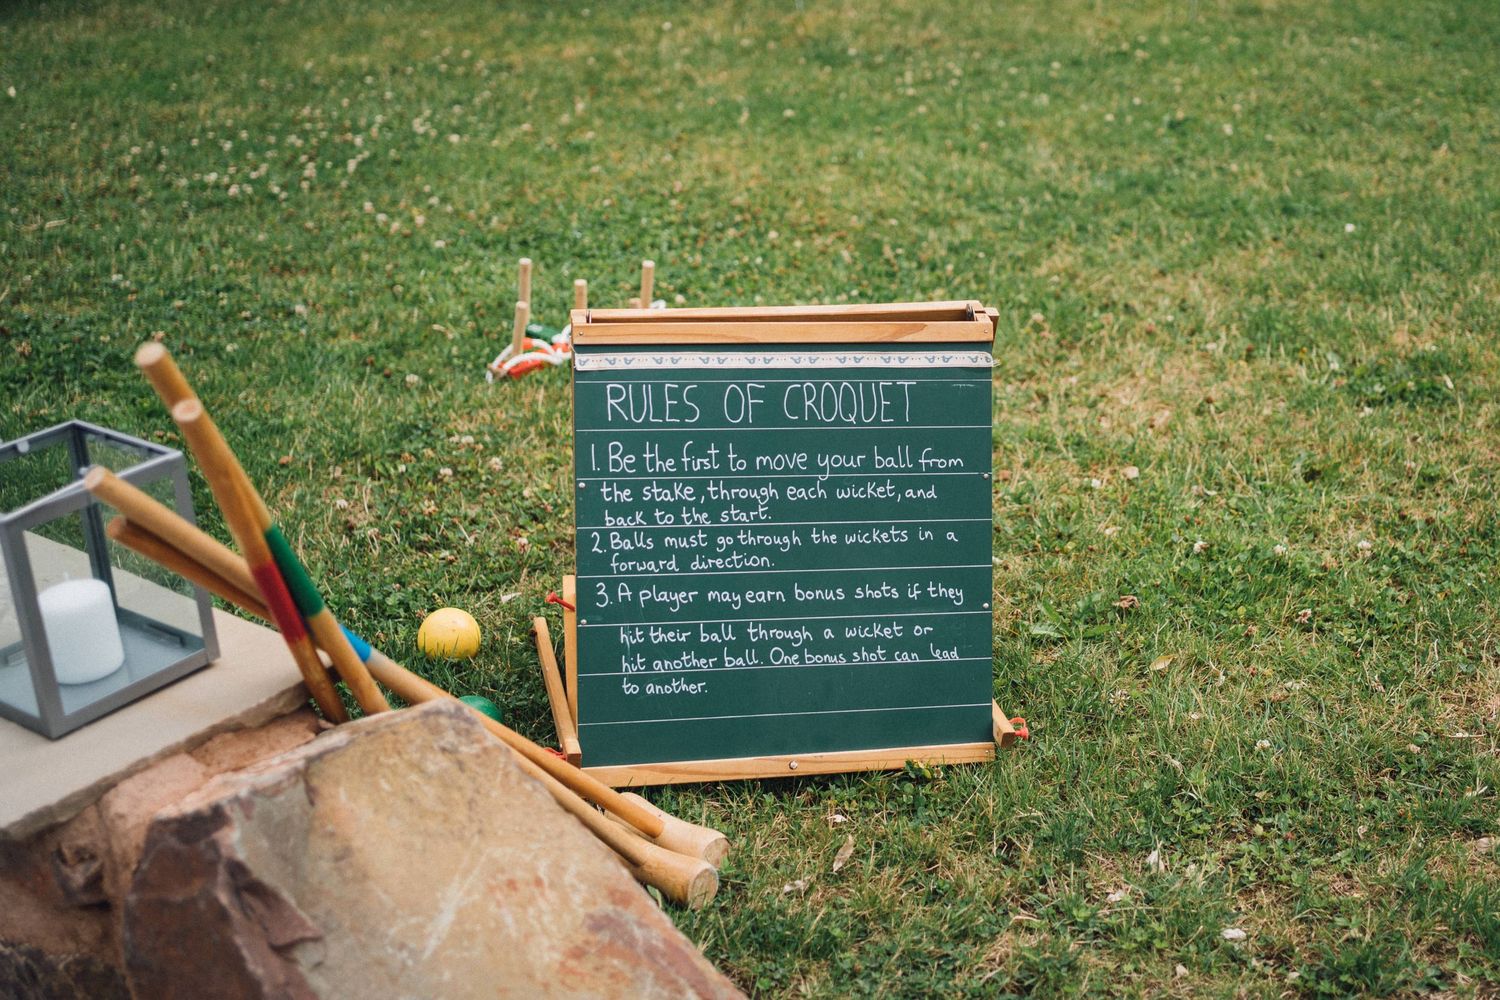 RULES OF CROQUET
1. Be the first to move your ball from
the stake, through each wicket, and
back to the start.
2. Balls must go through the wickets in a
forward direction.
3. A player may earn bonus shots if they
hit their ball through a wicket or
hit another ball. One bonus shot can lead
to another.